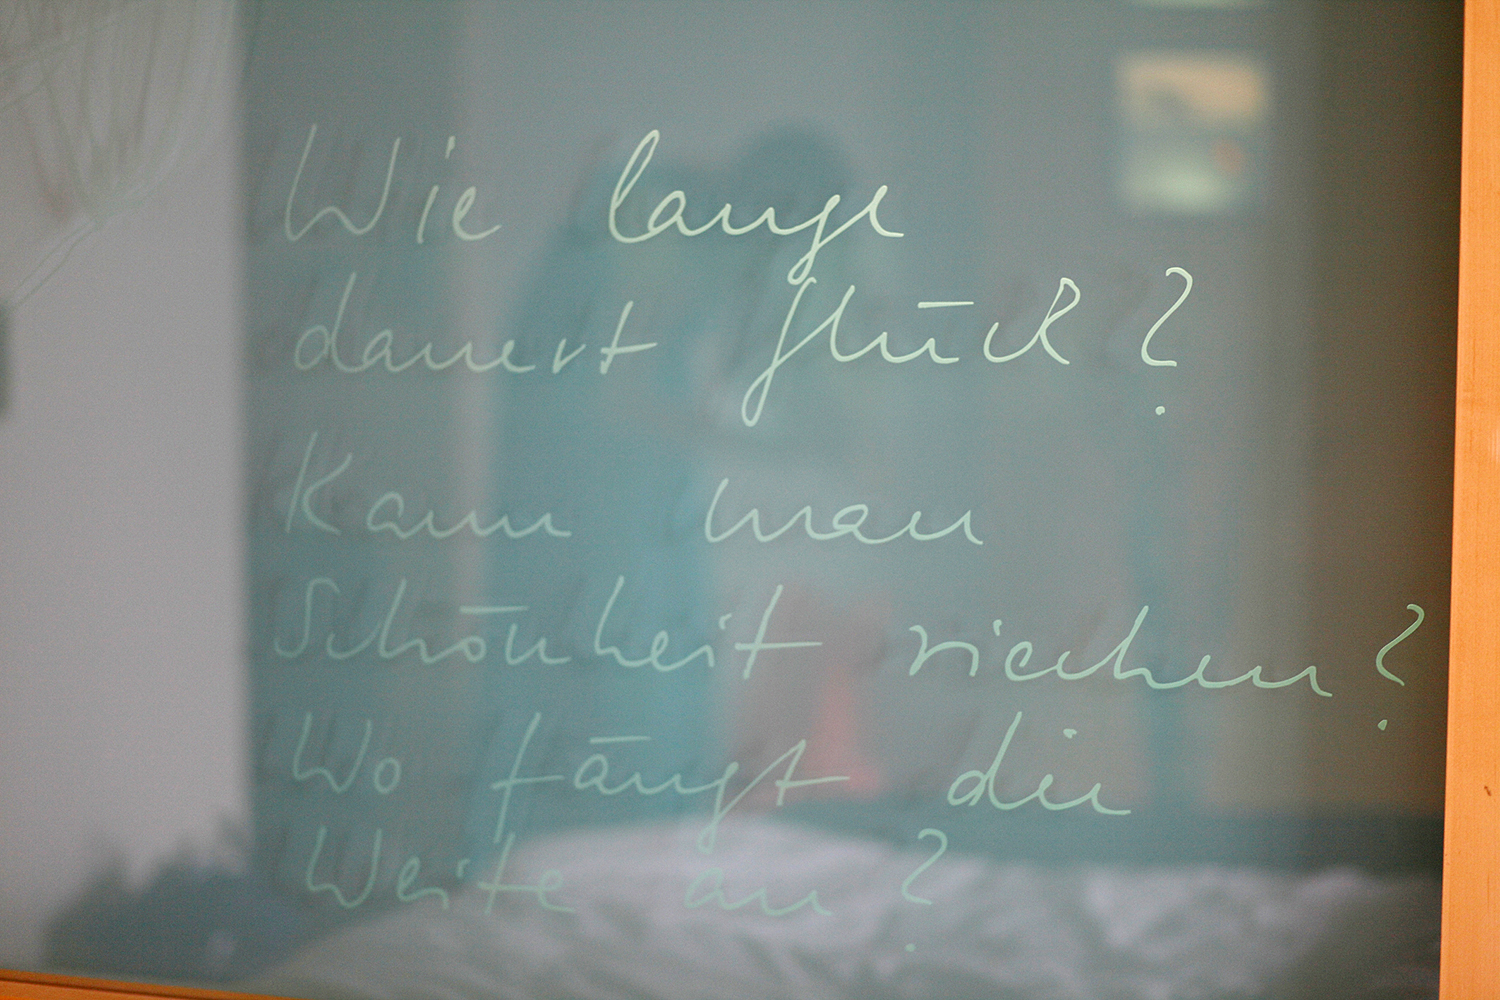 Wie lange
dauert Glück?
Kann man
Schönheit riechen?
Wo fängt die
Weite an?